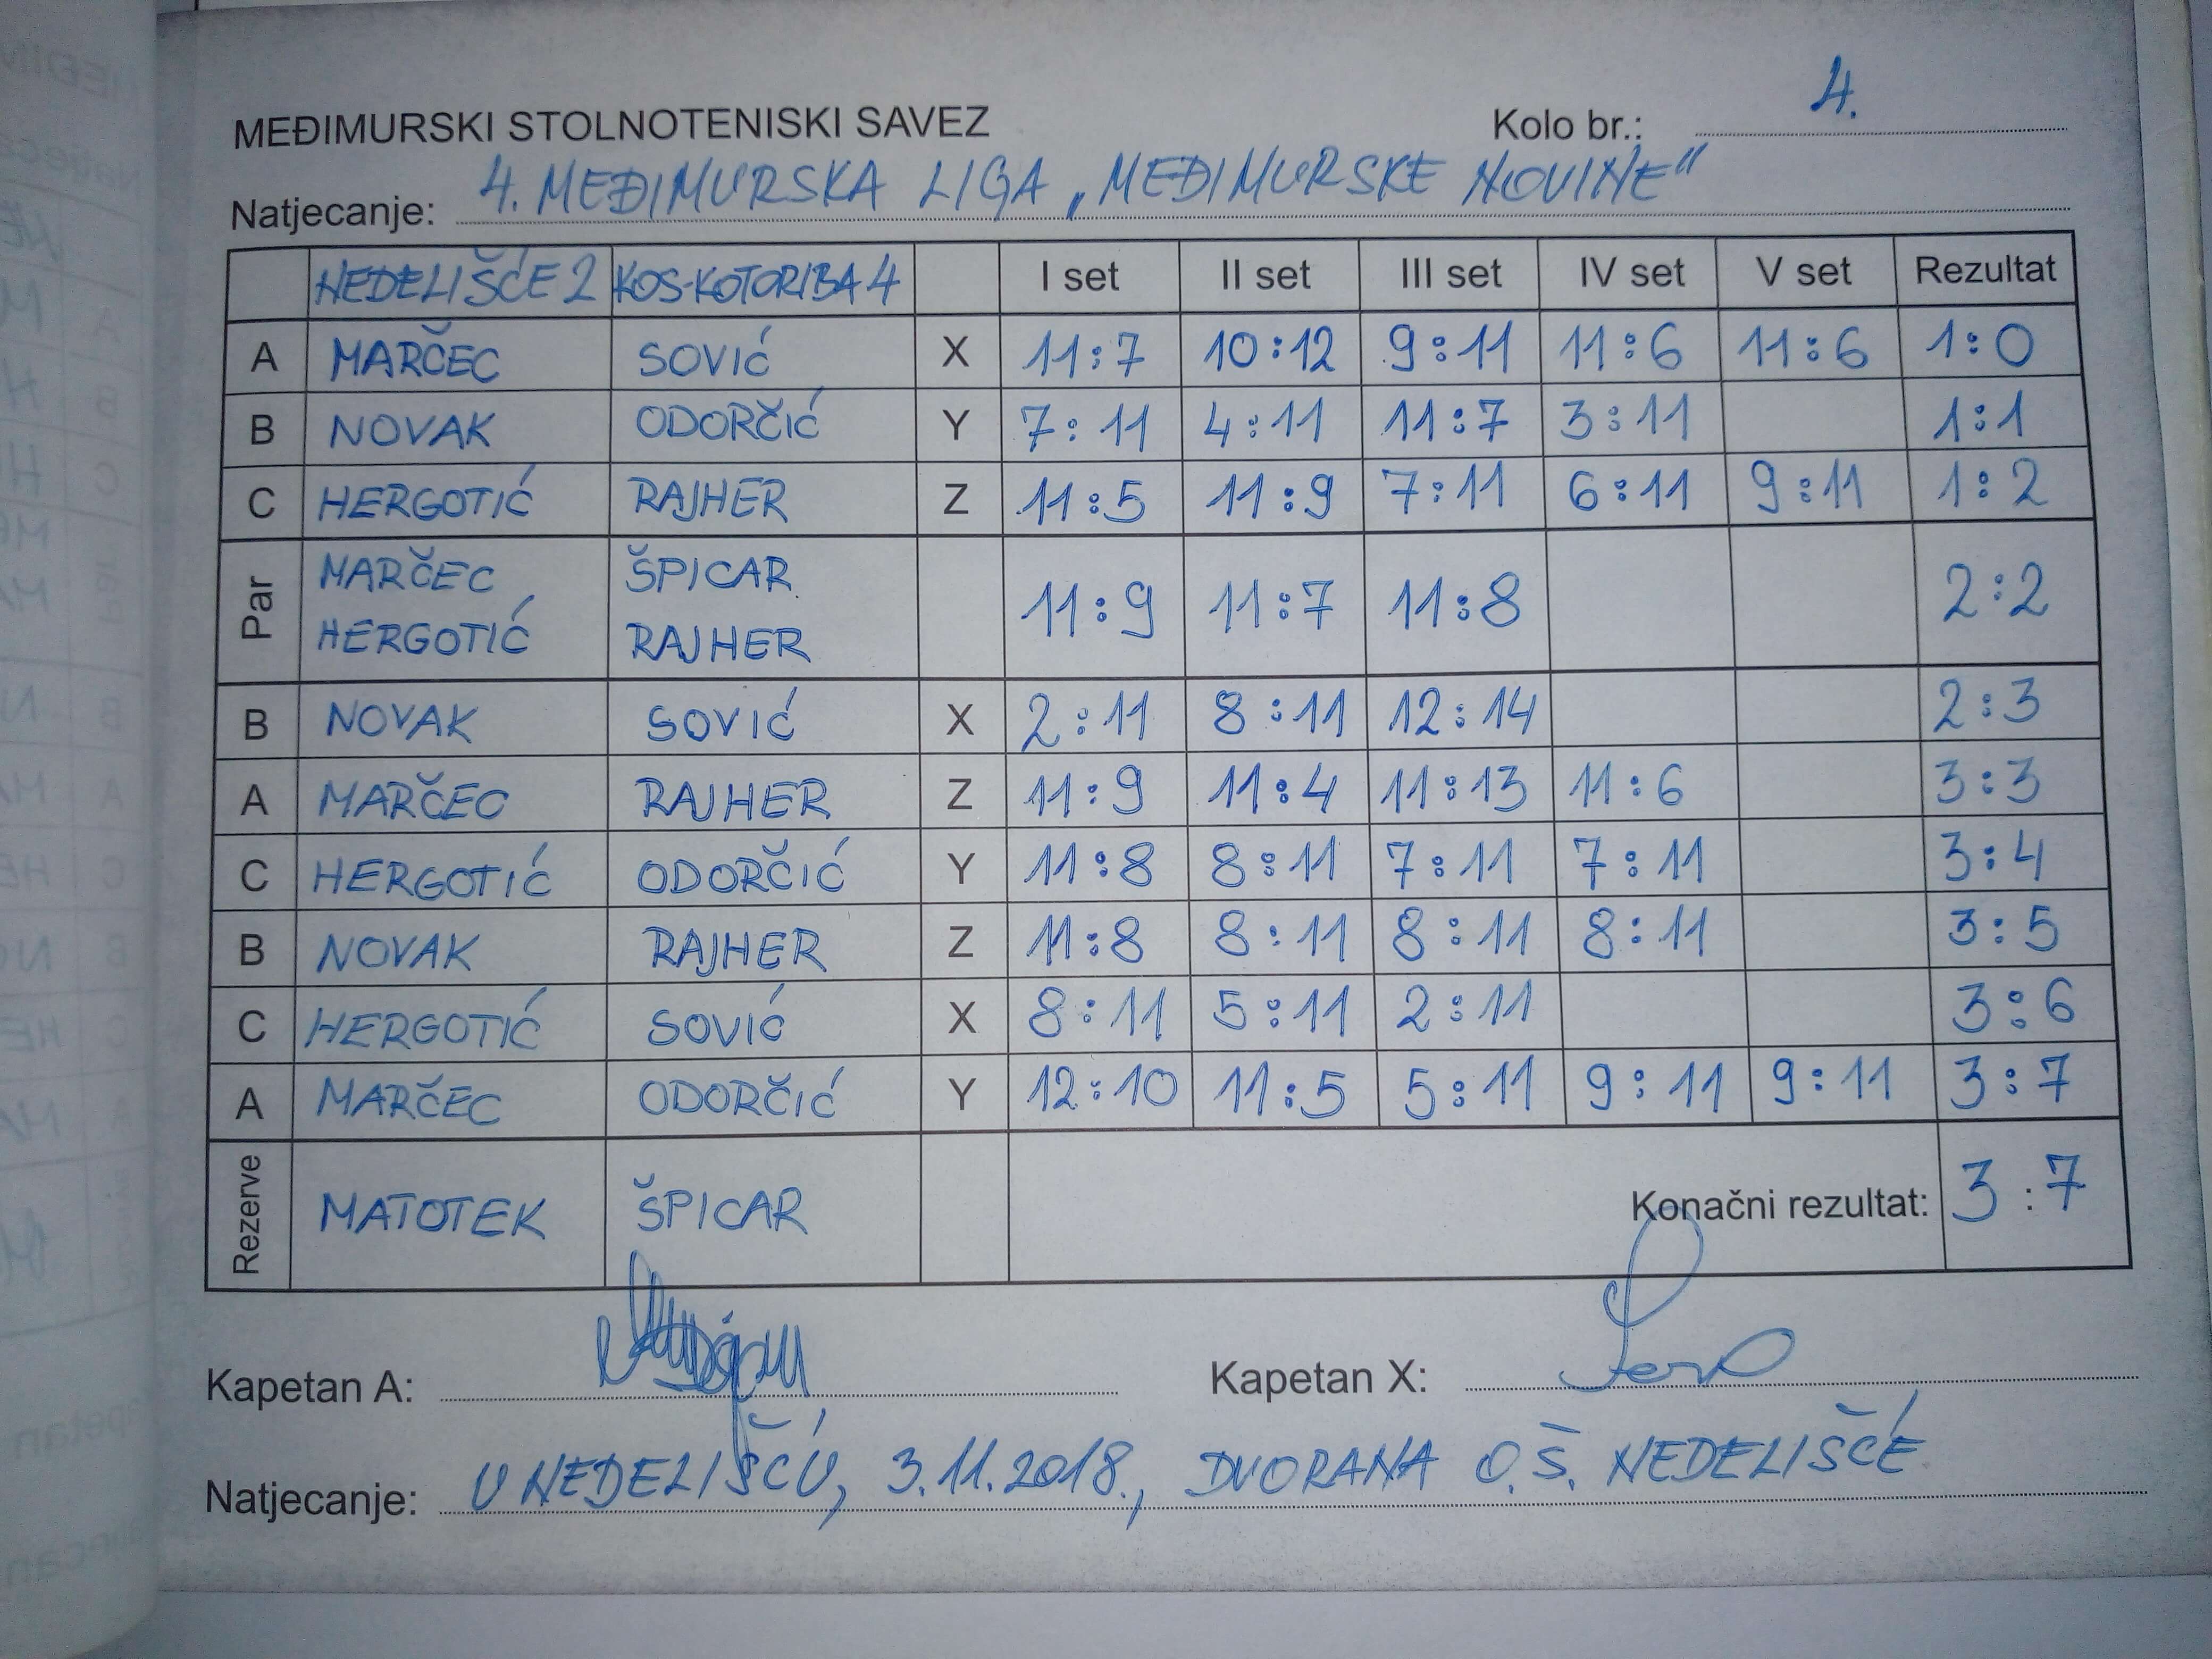 MEĐIMURSKI STOLNOTENISKI SAVEZ Kolo br.: 4.
Natjecanje: 4. MEĐIMURSKA LIGA „MEĐIMURSKE NOVINE"
NEDELIŠĆE 2 KOS-KOTORIBA 4 I set II set III set IV set V set Rezultat
A MARČEC SOVIĆ X 11:7 10:12 9:11 11:6 11:6 1:0
B NOVAK ODORČIĆ Y 7:11 4:11 11:7 3:11 1:1
C HERGOTIĆ RAJHER Z 11:5 11:9 7:11 6:11 9:11 1:2
Par MARČEC ŠPICAR 11:9 11:7 11:8 2:2
HERGOTIĆ RAJHER
B NOVAK SOVIĆ X 2:11 8:11 12:14 2:3
A MARČEC RAJHER Z 11:9 11:4 11:13 11:6 3:3
C HERGOTIĆ ODORČIĆ Y 11:8 8:11 7:11 7:11 3:4
B NOVAK RAJHER Z 11:8 8:11 8:11 8:11 3:5
C HERGOTIĆ SOVIĆ X 8:11 5:11 2:11 3:6
A MARČEC ODORČIĆ Y 12:10 11:5 5:11 9:11 9:11 3:7
Rezerve MATOTEK ŠPICAR Konačni rezultat: 3:7
Kapetan A: Kapetan X:
Natjecanje: U NEDELIŠĆU, 3.11.2018., DVORANA O.Š. NEDELIŠĆE